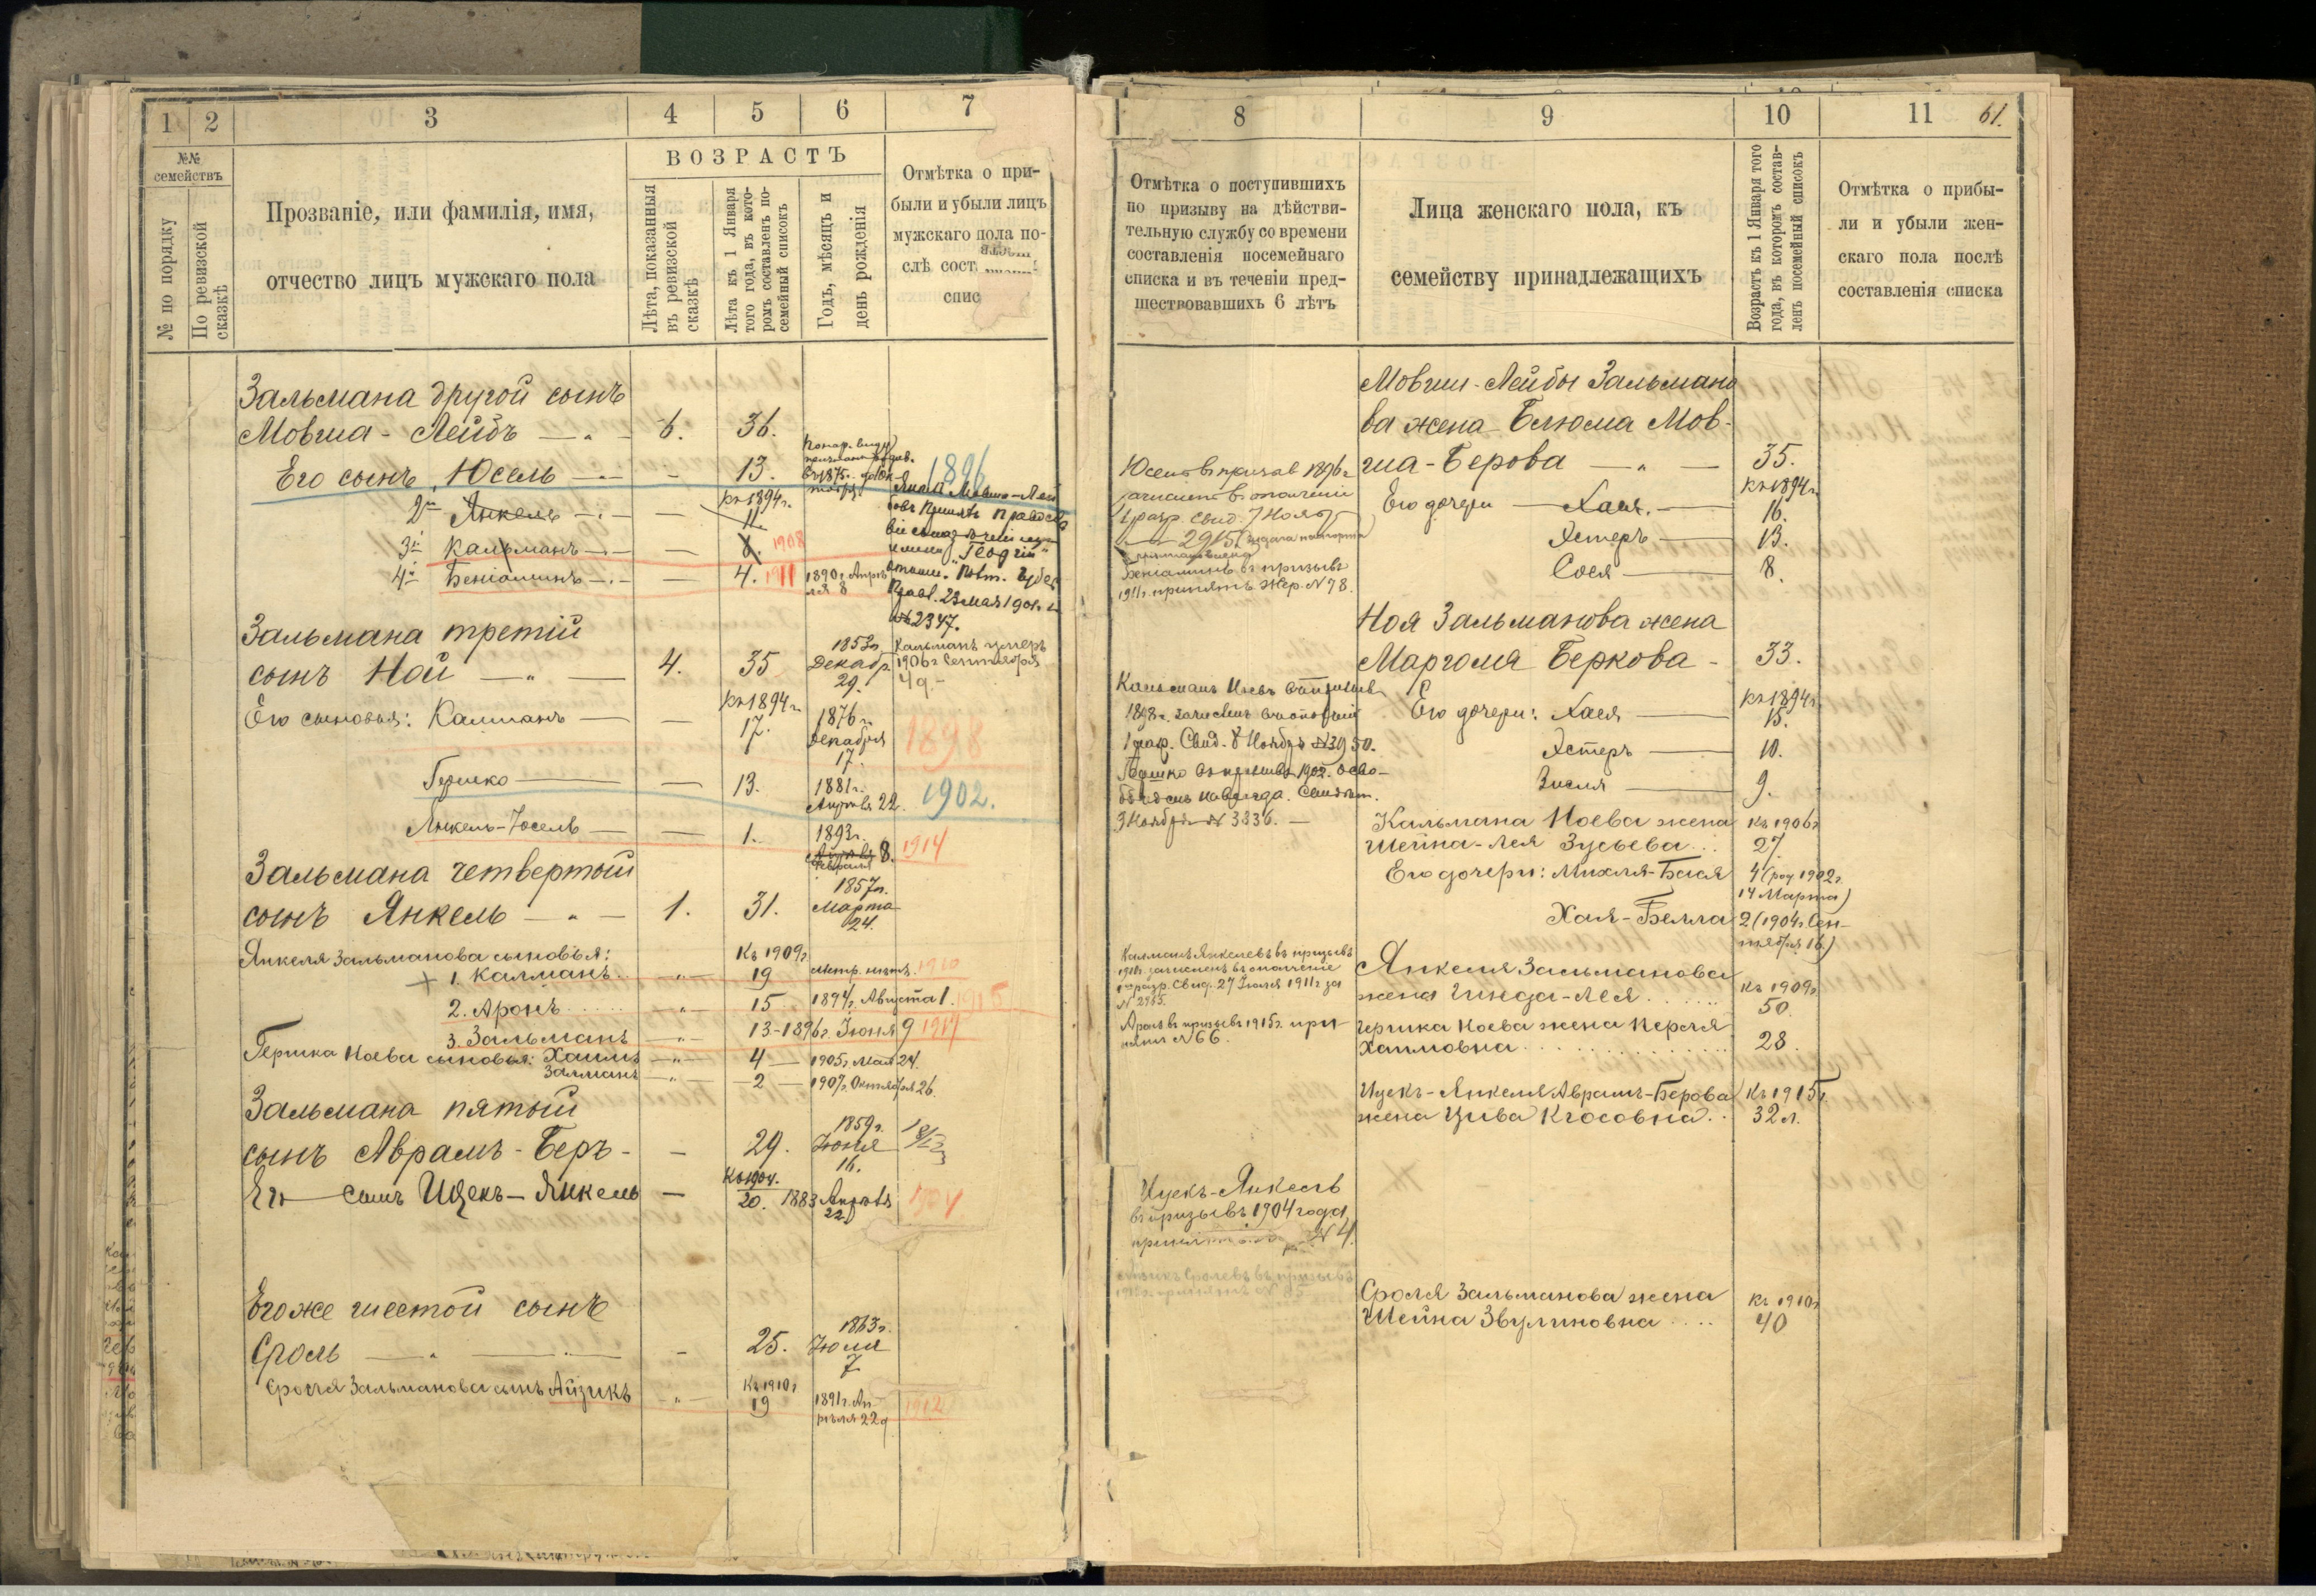 1 2 3 4 5 6 7
№№ семействъ
№ по порядку
По ревизской сказкѣ
Прозваніе, или фамилія, имя,
отчество лицъ мужскаго пола
ВОЗРАСТЪ
Лѣта, показанныя
въ ревизской
сказкѣ
Лѣта къ 1 Января
того года, въ кото-
ромъ составленъ по-
семейный списокъ
Годъ, мѣсяцъ и
день рожденія
Отмѣтка о при-
были и убыли лицъ
мужскаго пола по-
слѣ сост
спис
Зальмана другой сынъ
Мовша-Лейбъ — 6. 36.
Его сынъ Юсель — 13. 1896
къ 1894 г.
2й Янкель — 11.
3й Кальманъ — 8. 1908
4й Беніаминъ — 4. 1911 1890 г. Апрѣ-
ля 8
Янкель Мовша-Лей
бовъ принялъ православ
"Георгій"
Правл. 23 мая 1901 г.
№ 2347.
Зальмана третій
сынъ Ной — 4. 35 1853 г.
Декабр.
29.
Кальманъ умеръ
1906 г. Сентября
49.-
къ 1894 г.
Его сыновья: Калманъ — 17. 1876 г.
Декабря
17. 1898
Гершко — 13. 1881 г.
Апрѣля 22. 1902.
Янкель-Юсель — 1. 1893 г.
Апрѣля 8. 1914
Февраля
Зальмана четвертый
сынъ Янкель — 1. 31. 1857 г.
Марта
24.
Янкеля Зальманова сыновья: Къ 1909 г.
+ 1. Калманъ .. 19 метр. нѣтъ. 1910
2. Аронъ ..... 15 1894 г. Августа 1. 1915
3. Зальманъ 13 - 1896 г. Іюня 9 1917
Гершка Ноева сыновья: Хаимъ 4 — 1905 г. Мая 24.
Залманъ 2 — 1907 г. Октября 26.
Зальмана пятый
сынъ Аврамъ-Беръ - 29. 1859 г.
Іюня
16.
Къ 1904.
Его сынъ Ицекъ-Янкель — 20. 1883 Апрѣля
22 1904
Его же шестой сынъ
Сроль — 25. 1863 г.
Іюля
7
Къ 1910 г.
Сроля Зальманова сынъ Айзикъ 19 1891 г. Ап-
рѣля 22 д 1912
8 9 10 11 61.
Отмѣтка о поступившихъ
по призыву на дѣйстви-
тельную службу со времени
составленія посемейнаго
списка и въ теченіи пред-
шествовавшихъ 6 лѣтъ
Лица женскаго пола, къ
семейству принадлежащихъ
Возрастъ къ 1 Января того
года, въ которомъ состав-
ленъ посемейный списокъ
Отмѣтка о прибы-
ли и убыли жен-
скаго пола послѣ
составленія списка
Мовши-Лейбы Зальмано
ва жена Блюма Мов-
ша-Берова — 35.
къ 1894 г.
Его дочери — Хая. — 16.
Эстеръ — 13.
Сося — 8.
Юсель въ призывъ 1896 г.
зачисленъ въ ополченіе
1 разр. Свид. 7 Ноябр
2915.
Беніаминъ въ призывъ
1911 г. принятъ Жер. № 78.
Ноя Зальманова жена
Марголя Беркова - 33.
къ 1894 г.
Его дочери: Хая — 15.
Эстеръ — 10.
Зисля — 9.
Кальманъ Ноевъ въ призывъ
1898 г. зачисленъ въ ополченіе
1 разр. Свид. 8 Ноября № 3950.
Гершко въ призывъ 1902. осво-
божденъ навсегда. Свидѣт.
3 Ноября № 3336. —
Кальмана Ноева жена къ 1906 г.
Шейна-Лея Зусьева... 27
Его дочери: Михля-Бася 4 (род 1902 г.
14 Марта)
Хая-Белла 2 (1904 г. Сен-
тября 16.)
Калманъ Янкелевъ въ призывъ
1910 г. зачисленъ въ ополченіе
1 разр. Свид. 27 Іюля 1911 г. за
№ 2965.
Янкеля Зальманова
жена Гинда-Лея ...... къ 1909 г.
50.
Аронъ въ призывъ 1915 г. при-
нятъ № 66.
Гершка Ноева жена Перля
Хаимовна ............... 28.
Ицекъ-Янкеля Аврамъ-Берова Къ 1915 г.
жена Цива Іосовна.. 32 л.
Ицекъ-Янкель
въ призывъ 1904 года
принятъ № 4.
Айзикъ Сролевъ въ призывъ
Сроля Зальманова жена Къ 1910 г.
Шейна Звулиновна .... 40